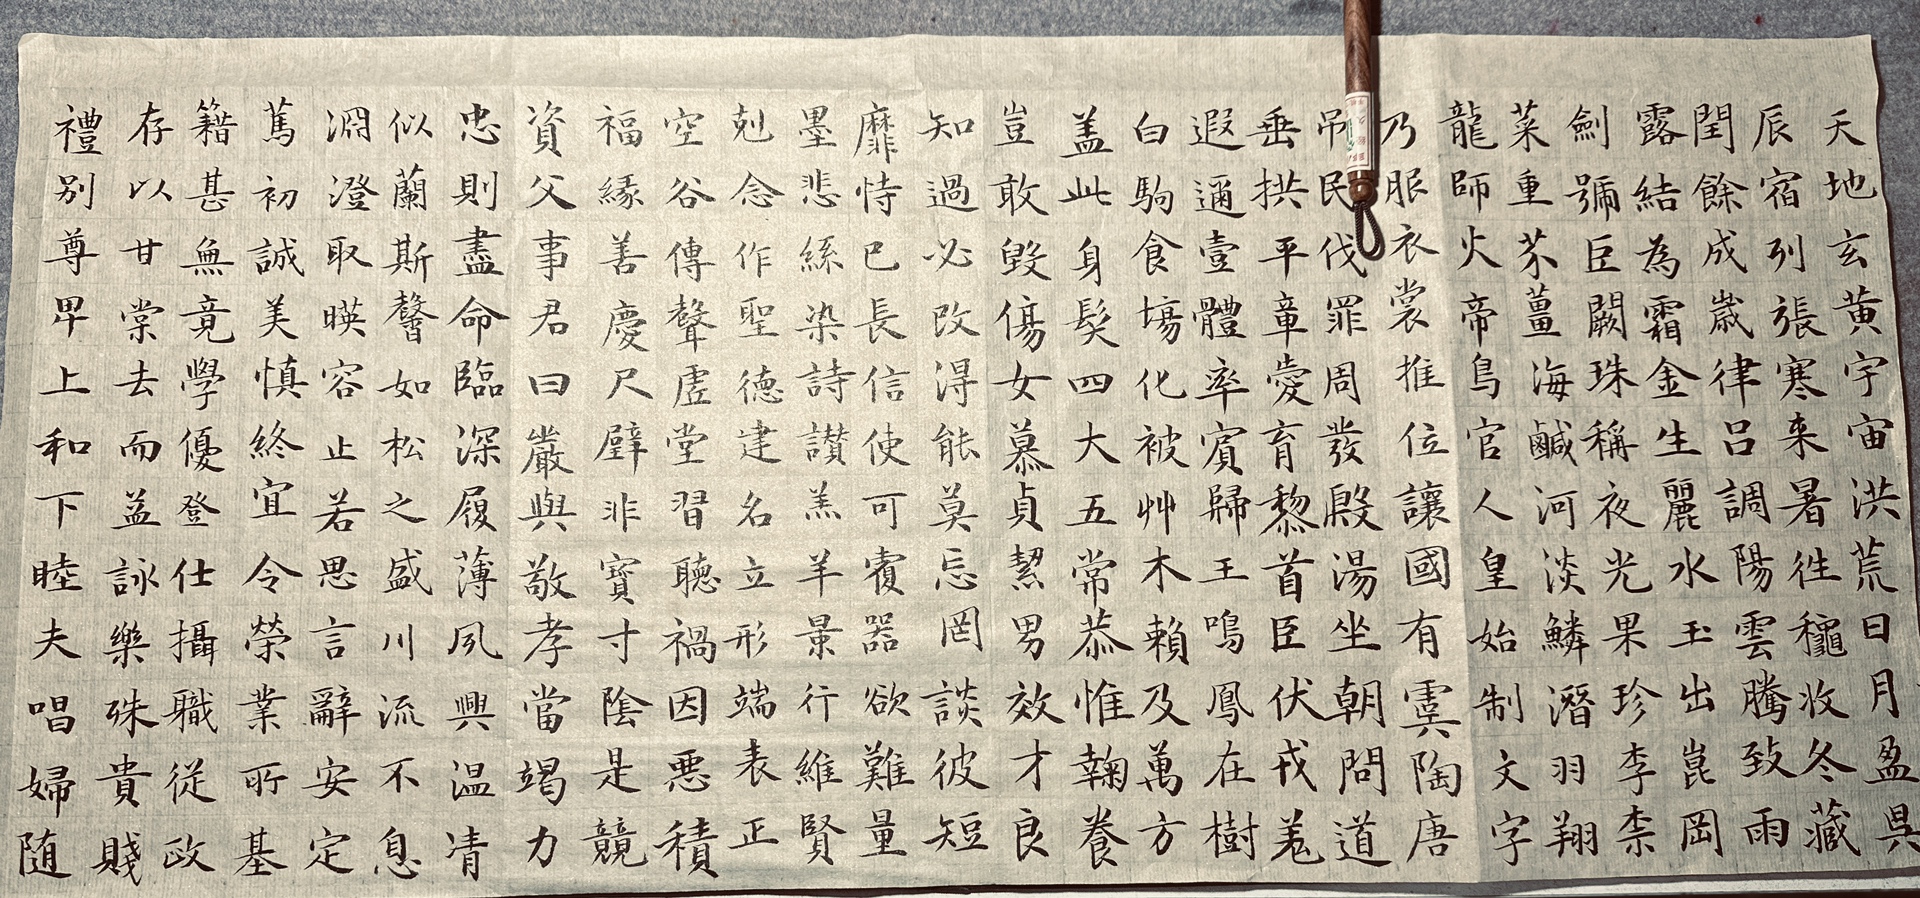 天地玄黄宇宙洪荒日月盈昃
辰宿列張寒来暑往龝收冬藏
閏餘成歲律吕調陽雲騰致雨
露結為霜金生麗水玉出崑岡
劍號巨闕珠稱夜光果珍李柰
菜重芥薑海鹹河淡鱗潛羽翔
龍師火帝鳥官人皇始制文字
乃服衣裳推位讓國有虞陶唐
吊民伐罪周發殷湯坐朝問道
垂拱平章愛育黎首臣伏戎羌
遐邇壹體率賓歸王鳴鳳在樹
白駒食場化被艸木賴及萬方
盖此身髮四大五常恭惟鞠養
豈敢毀傷女慕貞絜男效才良
知過必改得能莫忘罔談彼短
靡恃已長信使可覆器欲難量
墨悲絲染詩讃羔羊景行維賢
剋念作聖德建名立形端表正
空谷傳聲虚堂習聽禍因惡積
福緣善慶尺璧非寶寸陰是競
資父事君曰嚴與敬孝當竭力
忠則盡命臨深履薄夙興温凊
似蘭斯馨如松之盛川流不息
淵澄取暎容止若思言辭安定
篤初誠美慎終宜令榮業所基
籍甚無竟學優登仕攝職從政
存以甘棠去而益詠樂殊貴賤
禮別尊卑上和下睦夫唱婦随